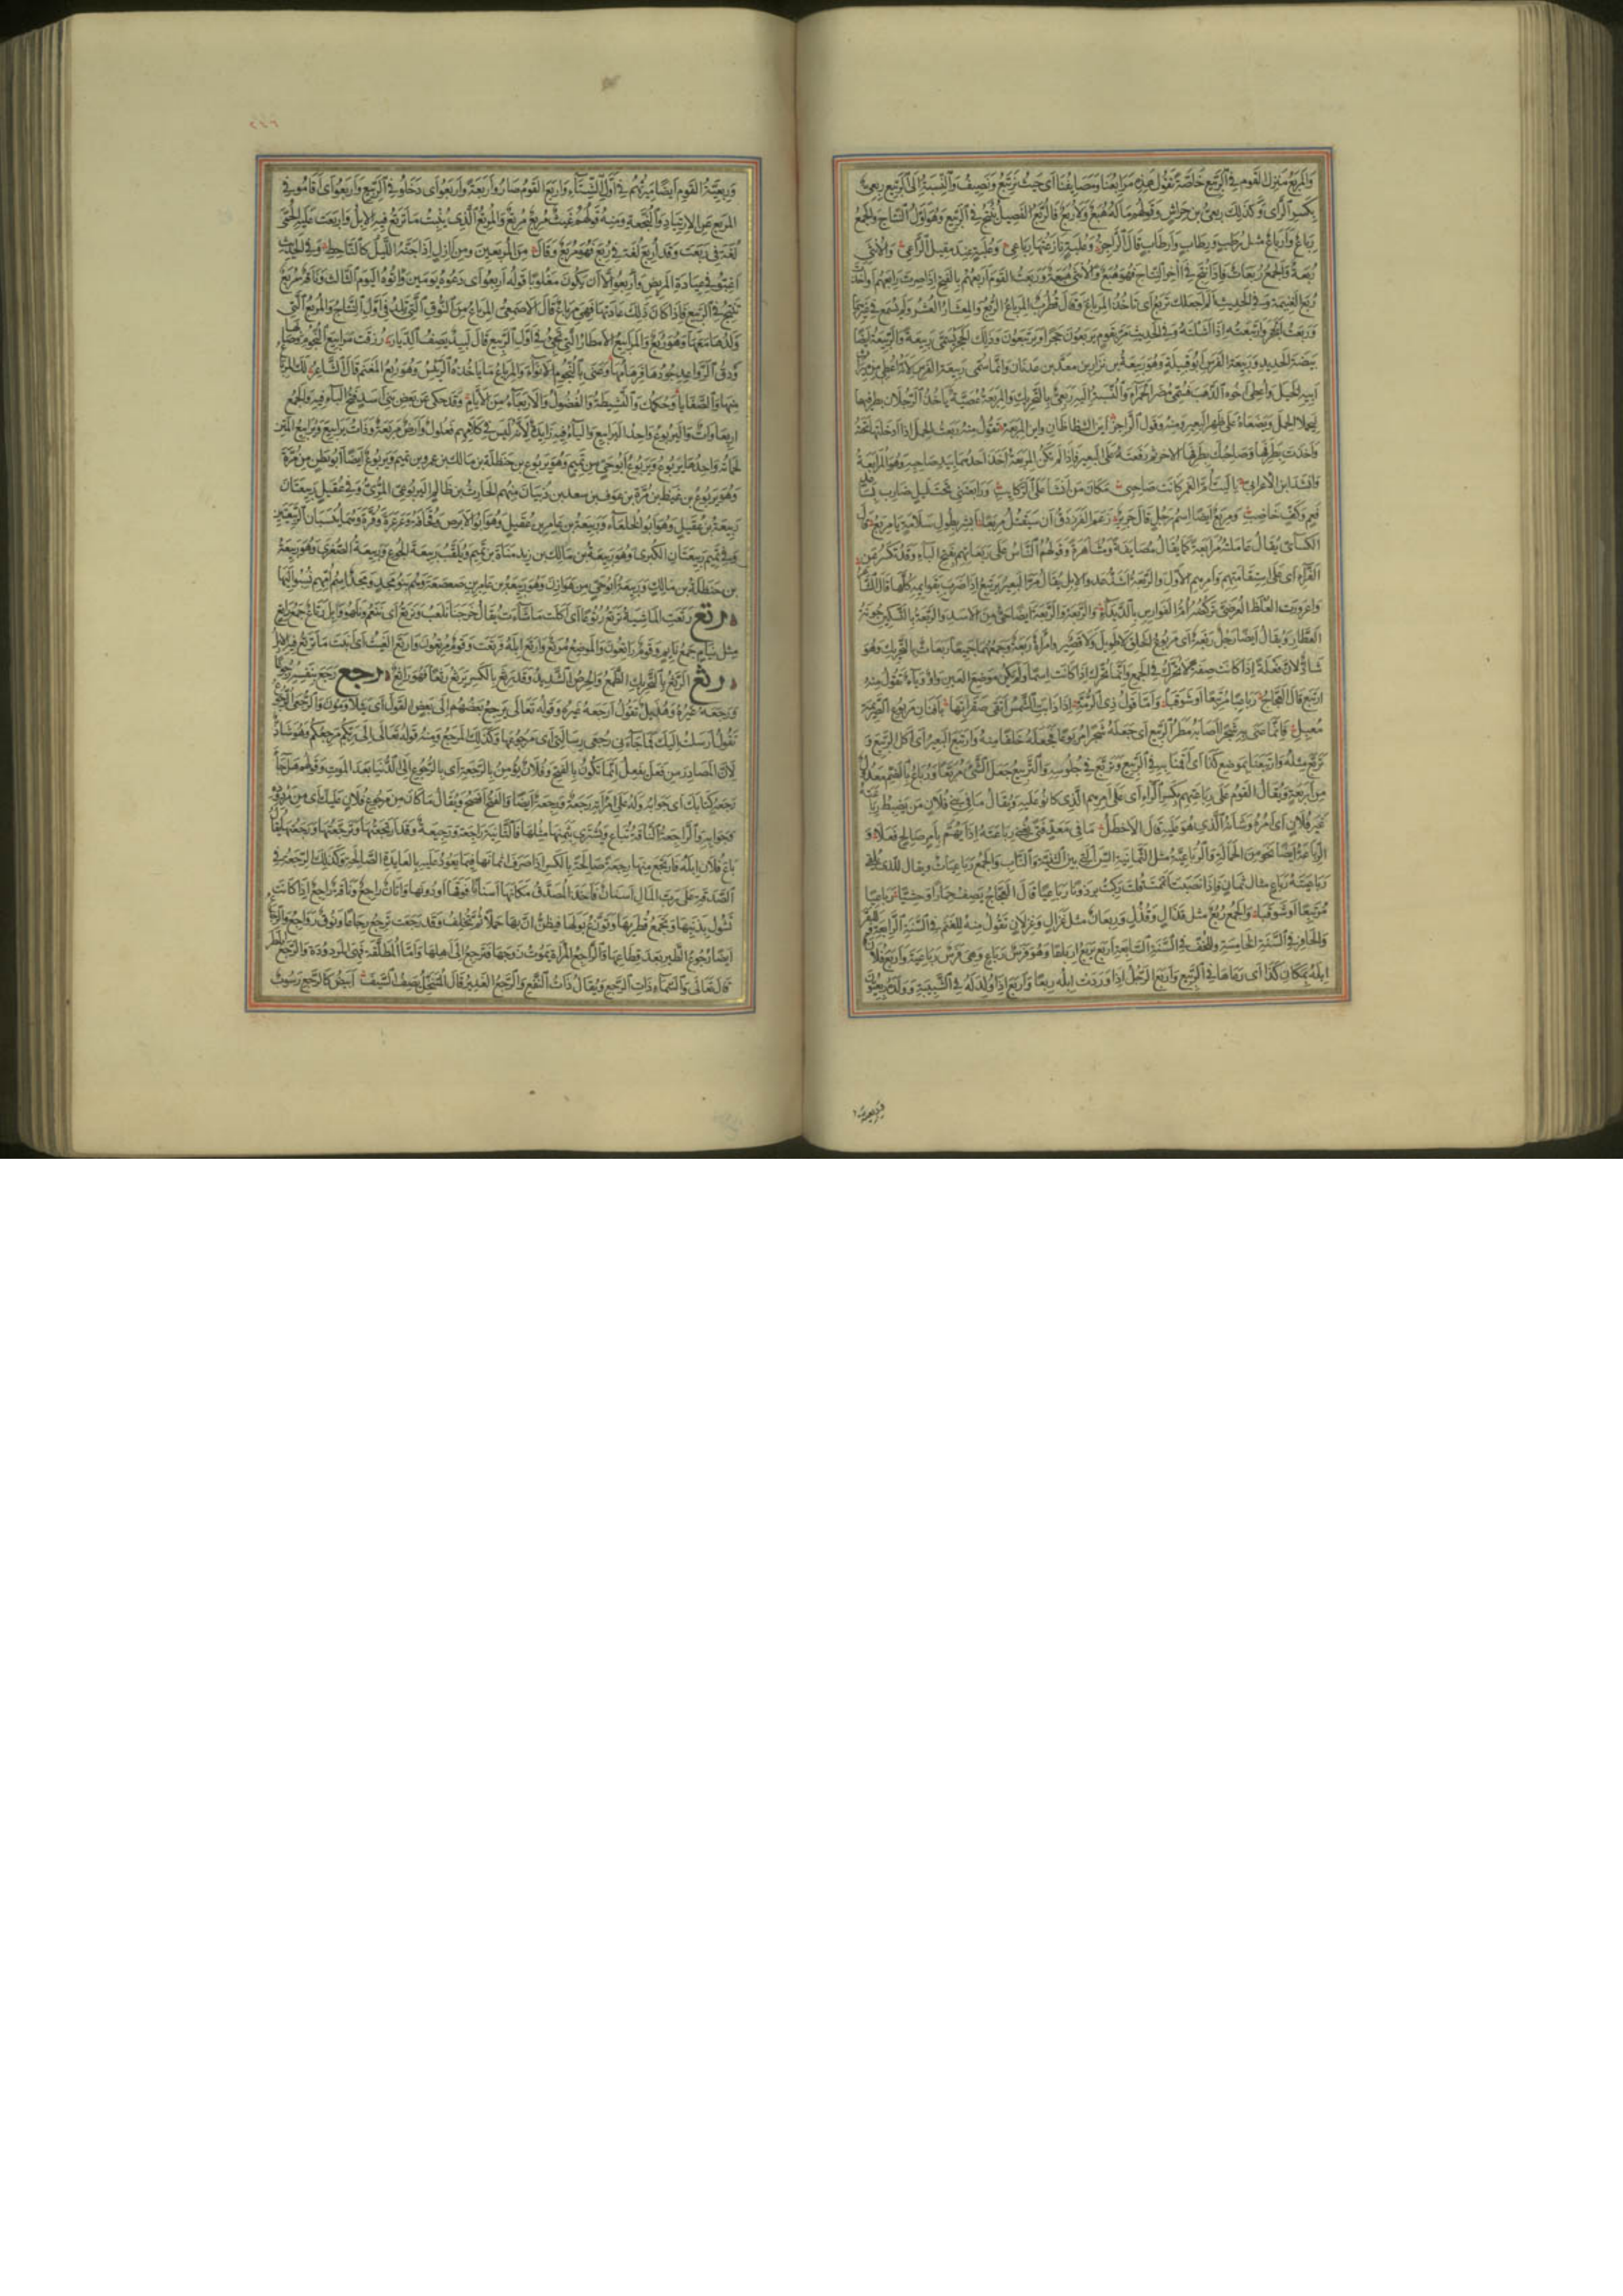 والمربع منزل القوم في الربيع خاصة تقول هذه مرابعنا ومصايفنا اى حيث نرتبع ونصيف والنسبة الى الربيع ربعى
بكسر الراى وكذلك ربعى بن حراش وقولهم ماله هبع ولا ربع فالربع الفصيل ينتج في الربيع وهو اول النتاج والجمع
رباع وارباع مثل رطب ورطاب وارطاب قال الراجز وعلبة نازعتها رباعى وعلبة عند مقيل الراعى والانثى
ربعة والجمع ربعات فاذا نتج في آخر النتاج فهو هبع والانثى هبعة وربعت القوم اربعهم بالفتح اذا صرت رابعهم او اخذت
ربع الغنيمة وفي الحديث الم اجعلك تربع اى تاخذ المرباع وقال قطرب المرباع الربع والمعشار العشر ولم يسمع في غيرهما
وربعت الحجر وارتبعته اذا اشلته وفي الحديث مر بقوم يربعون حجرا ويرتبعون وذلك الحجر يسمى ربيعة والربيعة ايضا
بيضة الحديد وربيعة الفرس ابو قبيلة وهو ربيعة بن نزار بن معد بن عدنان وانما سمى ربيعة الفرس لانه اعطى من ميراث
ابيه الخيل واعطى اخوه الذهب فسمى مضر الحمراء والنسبة اليه ربعى بالتحريك والمربعة عصية ياخذ الرجلان بطرفيها
ليحملا الحمل ويضعاه على ظهر البعير ومنه قول الراجز اين الشظاظان واين المربعة تقول منه ربعت الحمل اذا ادخلتها تحته
واخذت بطرفها وصاحبك بطرفها الاخر ثم رفعته على البعير فاذا لم تكن المربعة اخذ احدهما بيد صاحبه وهو المرابعة
وانشد ابن الاعرابى يا ليت ام الغمر كانت صاحبى مكان من انشا على الركايب ورابعتنى تحت ليل ضارب بساعد
فعم وكف خاضب ومربع ايضا اسم رجل قال جرير زعم الفرزدق ان سيقتل مربعا ابشر بطول سلامة يا مربع وقال
الكسائى يقال عاملته مرابعة كما يقال مصايفة ومشاهرة وقولهم الناس على ربعاتهم بفتح الباء وقد تكسر عن
الفراء اى على استقامتهم وامرهم الاول والربعة اشد عدو الابل يقال مر البعير يرتبع اذا ضرب بقوايمه كلها قال الشاعر
واعرورت العلط العرضى تركضه ام الفوارس بالديداء والربعة والربعة ايضا حى من الاسد والربعة بالتسكين جونة
العطار ويقال ايضا رجل ربعة اى مربوع الخلق لا طويل ولا قصير وامراة ربعة وجمعهما جميعا ربعات بالتحريك وهو
شاذ لان فعلة اذا كانت صفة لا تحرك في الجمع وانما تحرك اذا كانت اسما ولم يكن موضع العين واو وياء تقول منه
ارتبع قال العجاج رباعيا مرتبعا او شوقبا واما قول ذى الرمة اذا ذابت الشمس اتقى صقراتها بافنان مربوع الصريمة
معبل فانما عنى به شجرا اصابه مطر الربيع اى جعله شجرا مربوعا فجعله خلفا منه وارتبع البعير اى اكل الربيع و
تربع مثله وارتبعنا بموضع كذا اى اقمنا به في الربيع وتربع في جلوسه والتربيع جعل الشئ مربعا ورباع بالضم معدول
من اربعة ويقال القوم على رباعتهم بكسر الراء اى على امرهم الذى كانوا عليه ويقال ما في بنى فلان من يضبط رباعته
غير فلان اى امره وشانه الذى هو عليه قال الاخطل ما في معد فتى يغنى رباعته اذا يهم بامر صالح فعلا و
الرباعة ايضا نحو من الحمالة والرباعية مثل الثمانية السن التى بين الثنية والناب والجمع رباعيات ويقال للذى يلقى
رباعيته رباع مثال ثمان فاذا نصبت اتممت فقلت ركبت برذونا رباعيا قال العجاج يصف حمارا وحشيا رباعيا
مرتبعا او شوقبا والجمع ربع مثل قذال وقذل وربعان مثل غزال وغزلان تقول منه للغنم في السنة الرابعة وللبقر
والحافر في السنة الخامسة وللخف في السنة السابعة اربع يربع ارباعا وهو فرس رباع وهى فرس رباعية واربع فلان
ابله بمكان كذا اى رعاها في الربيع واربع الرجل اذا وردت ابله ربعا واربع اذا ولد له في الشبيبة وولده ربعيون
وربعية
وربعية القوم ايضا ميرتهم في اول الشتاء واربع القوم صاروا اربعة واربعوا اى دخلوا في الربيع واربعوا اى اقاموا في
المربع عن الارتياد والنجعة ومنه قولهم غيث مربع مرتع والمربع الذى ينبت ما ترتع فيه الابل واربعت عليه الحمى
لغة في ربعت وقد اربع لغة في ربع فهو مربع وقال من المربعين ومن آزل اذا جنه الليل كالناحط وفي الحديث
اغبوا في عيادة المريض واربعوا الا ان يكون مغلوبا قوله اربعوا اى دعوه يومين واتوه اليوم الثالث وناقة مربع
تنتج في الربيع فاذا كان ذلك عادتها فهى مرباع قال الاصمعى المرباع من النوق التى تلد في اول النتاج والمربع التى
ولدها معها وهو ربع والمرابيع الامطار التى تجئ في اول الربيع قال لبيد يصف الديار رزقت مرابيع النجوم وصابها
ودق الرواعد جودها فرهامها وعنى بالنجوم الانواء والمرباع ما ياخذه الرئيس وهو ربع المغنم قال الشاعر لك المرباع
منها والصفايا وحكمك والنشيطة والفضول والاربعاء من الايام وقد حكى عن بعض بنى اسد فتح الباء فيه والجمع
اربعاوات واليربوع واحد اليرابيع والياء فيه زايدة لانه ليس في كلامهم فعلول وارض مربعة ذات يرابيع ويرابيع المتن
لحماته واحدها يربوع ويربوع ابو حى من تميم وهو يربوع بن حنظلة بن مالك بن عمرو بن تميم ويربوع ايضا ابو بطن من مرة
وهو يربوع بن غيظ بن مرة بن عوف بن سعد بن ذبيان منهم الحارث بن ظالم اليربوعى المرى وفي عقيل ربيعتان
ربيعة بن عقيل وهو ابو الخلعاء وربيعة بن عامر بن عقيل وهو ابو الابرص وقحافة وعرعرة وقرة وهما ينسبان الربيعتين
وفي تميم ربيعتان الكبرى وهو ربيعة بن مالك بن زيد مناة بن تميم ويلقب ربيعة الجوع وربيعة الصغرى وهو ربيعة
بن حنظلة بن مالك وربيعة ابو حى من هوازن وهو ربيعة بن عامر بن صعصعة وهم بنو مجد ومجد اسم امهم نسبوا اليها
رتع رتعت الماشية ترتع رتوعا اى اكلت ما شاءت يقال خرجنا نلعب ونرتع اى ننعم ونلهو وابل رتاع جمع راتع
مثل نيام جمع نايم وقوم راتعون والموضع مرتع وارتع ابله فرتعت وقوم مرتعون وارتع الغيث اى انبت ما ترتع فيه الابل
رثع الرثع بالتحريك الطمع والحرص الشديد وقد رثع بالكسر يرثع رثعا فهو راثع رجع رجع بنفسه رجوعا
ورجعه غيره وهذيل تقول ارجعه غيره وقوله تعالى يرجع بعضهم الى بعض القول اى يتلاومون والرجعى الرجوع
تقول ارسلت اليك فما جاءنى رجعى رسالتى اى مرجوعها وكذلك المرجع ومنه قوله تعالى الى ربكم مرجعكم وهو شاذ
لان المصادر من فعل يفعل انما تكون بالفتح وفلان يؤمن بالرجعة اى بالرجوع الى الدنيا بعد الموت وقولهم هل جاء
رجعة كتابك اى جوابه وله على امراته رجعة ورجعة ايضا والفتح افصح ويقال ما كان من مرجوع فلان عليك اى من مردوده
وجوابه والراجعة الناقة تباع ويشترى بثمنها مثلها فالثانية راجعة ورجيعة وقد ارتجعتها وترجعتها ورجعتها يقال
باع فلان ابله فارتجع منها رجعة صالحة بالكسر اذا صرف اثمانها فيما يعود عليه بالعايدة الصالحة وكذلك الرجعة في
الصدقة تجب على رب المال اسنان فاخذ المصدق مكانها اسنانا فوقها او دونها واتان راجع وناقة راجع اذا كانت
تشول بذنبها وتجمع قطريها وتوزغ بولها فيظن ان بها حملا ثم تخلف وقد رجعت ترجع رجاعا ونوق رواجع والرجاع
ايضا رجوع الطير بعد قطاعها والراجع المراة يموت زوجها فترجع الى اهلها واما المطلقة فهى المردودة والرجع المطر
قال تعالى والسماء ذات الرجع ويقال ذات النفع والرجع الغدير قال المتنخل يصف السيف ابيض كالرجع رسوب